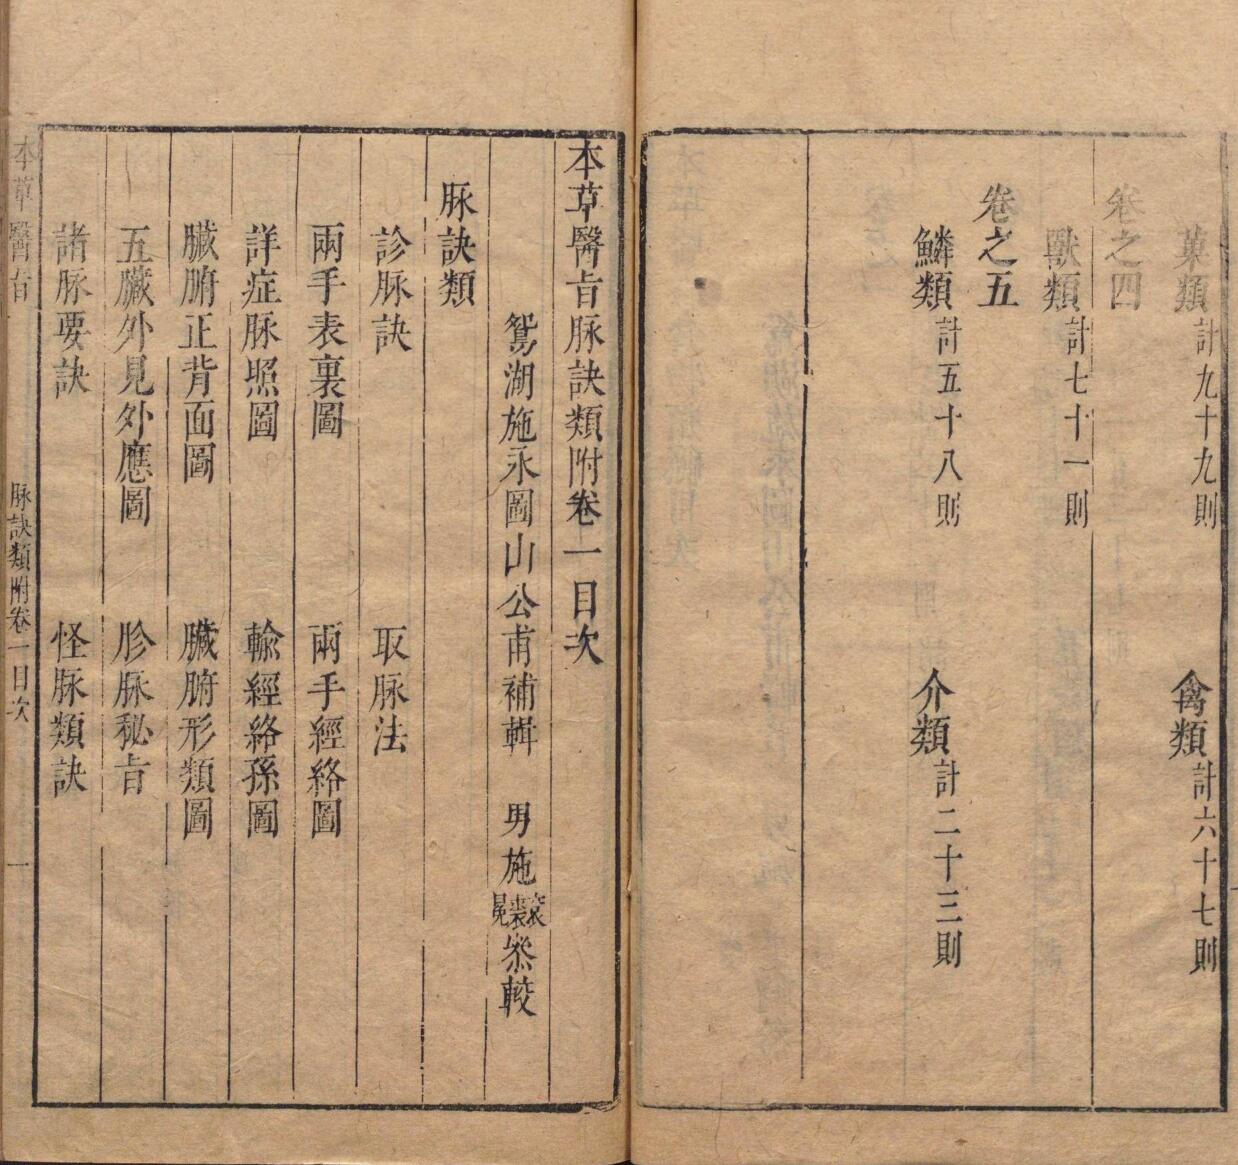 菓類計九十九則　禽類計六十七則
卷之四
獸類計七十一則
卷之五
鱗類計五十八則　介類計二十三則
本草醫旨脉訣類附卷一目次
鴛湖施永圖山公甫補輯　男施衮裘冕叅較
脉訣類
診脉訣　取脉法
兩手表裏圖　兩手經絡圖
詳症脉照圖　輸經絡孫圖
臟腑正背面圖　臟腑形類圖
五臟外見外應圖　胗脉秘旨
諸脉要訣　怪脉類訣
本草醫旨　脉訣類附卷一目次　一